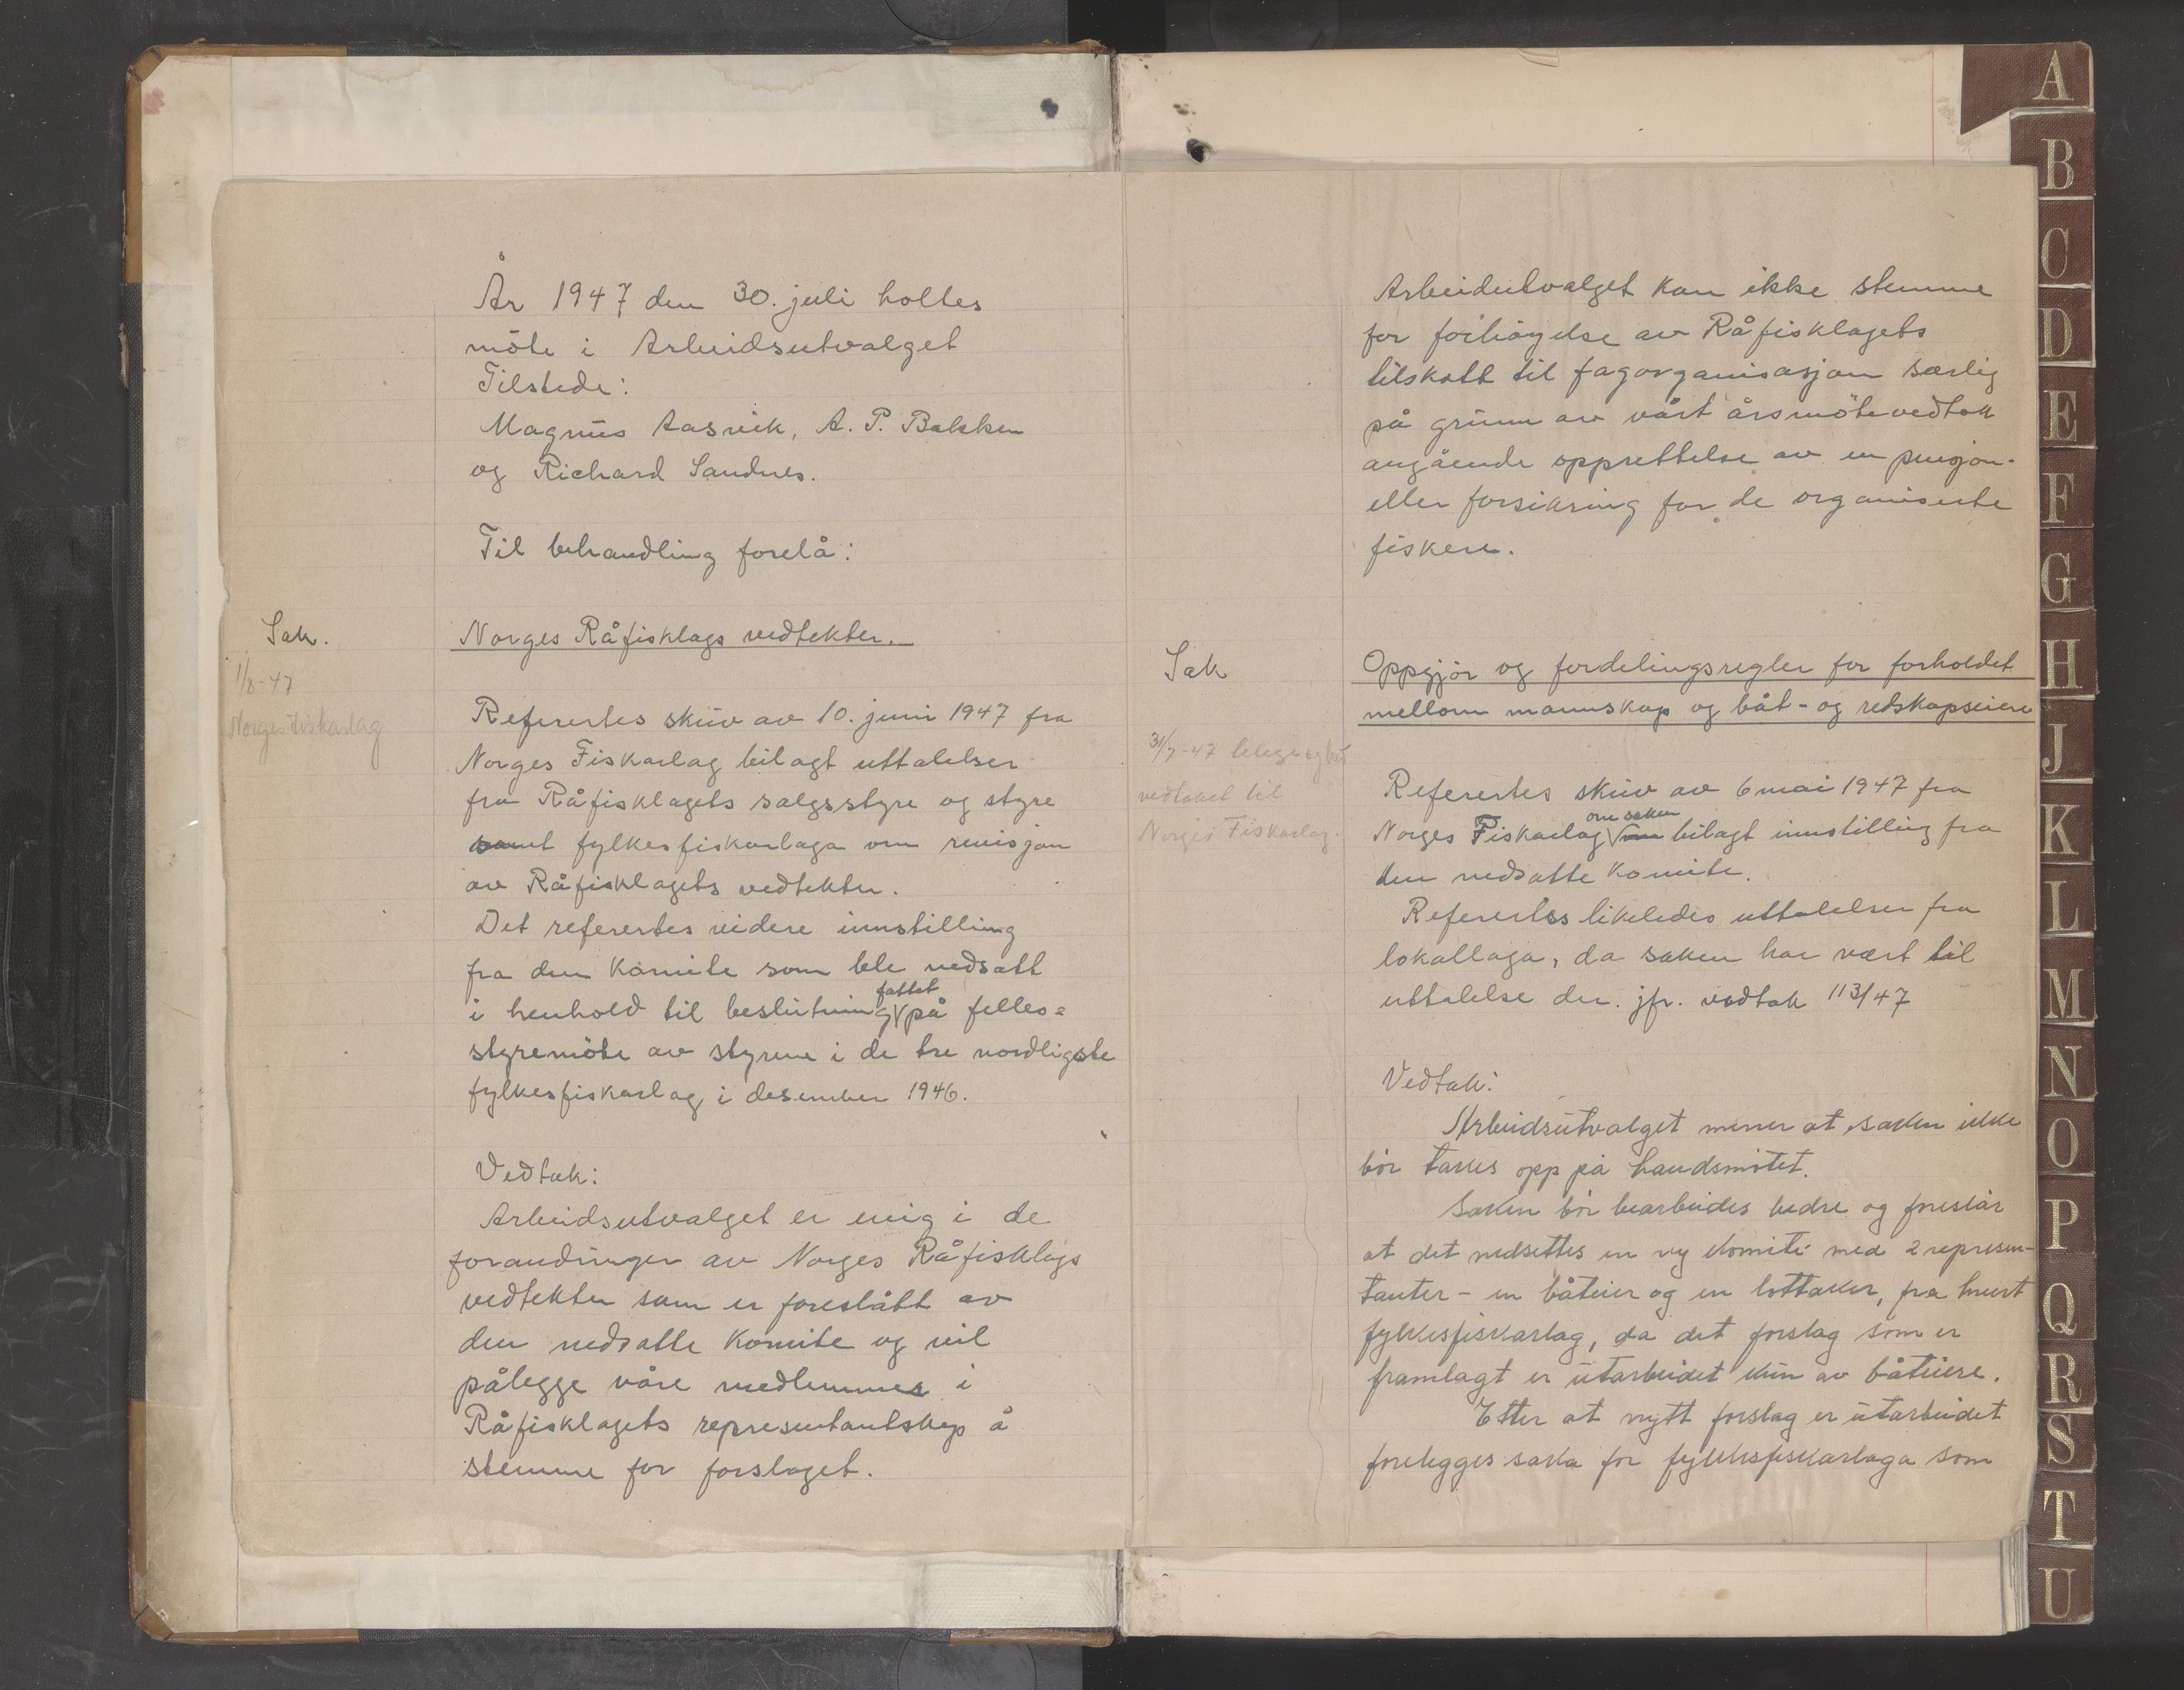 År 1947 den 30. juli holtes
möte i Arbeidsutvalget
Tilstede:
Magnus Aasvik, A. P. Bakken
og Richard Sandnes.
Til behandling forelå:
Sak.
Norges Råfisklags vedtekter.
1/8-47
Norges Fiskarlag
Referertes skriv av 10. juni 1947 fra
Norges Fiskarlag bilagt uttalelser
fra Råfisklagets salgsstyre og styre
samt fylkesfiskarlaga om revisjon
av Råfisklagets vedtekter.
Det referertes videre innstilling
fra den Komite som ble nedsatt
i henhold til beslutning fattet på felles=
styremöte av styrene i de tre nordligste
fylkesfiskarlag i desember 1946.
Vedtak:
Arbeidsutvalget er enig i de
forandringer av Norges Råfisklags
vedtekter som er foreslått av
den nedsatte Komite og vil
pålegge våre medlemmer i
Råfisklagets representantskap å
stemme for forslaget.
Arbeidutvalget kan ikke stemme
for forhöyelse av Råfisklagets
tilskott til fagorganisasjon særlig
på grunn av vårt årsmötevedtak
angående opprettelse av en pensjon-
eller forsikring for de organiserte
fiskere.
Sak
Oppgjör og fordelingsregler for forholdet
mellom mannskap og båt- og redskapseiere
31/7-47 telegrafert
vedtaket til
Norges Fiskarlag.
Referertes skriv av 6 mai 1947 fra
Norges Fiskarlag om saken bilagt innstilling fra
den nedsatte Komite.
Referertes likeledes uttalelser fra
lokallaga, da saken har vært til
uttalelse der. jfr. vedtak 113/47
Vedtak:
Arbeidsutvalget mener at saken ikke
bör takes opp på landsmötet.
Saken bör bearbeides bedre og foreslår
at det nedsettes en ny Komité med 2 represen-
tanter - en båteier og en lottaker, fra hvert
fylkesfiskarlag, da det forslag som er
framlagt er utarbeidet kun av båteiere.
Etter at nytt forslag er utarbeidet
forelegges saka for fylkesfiskarlaga som
A
B
C
D
E
F
G
H
J
K
L
M
N
O
P
Q
R
S
T
U